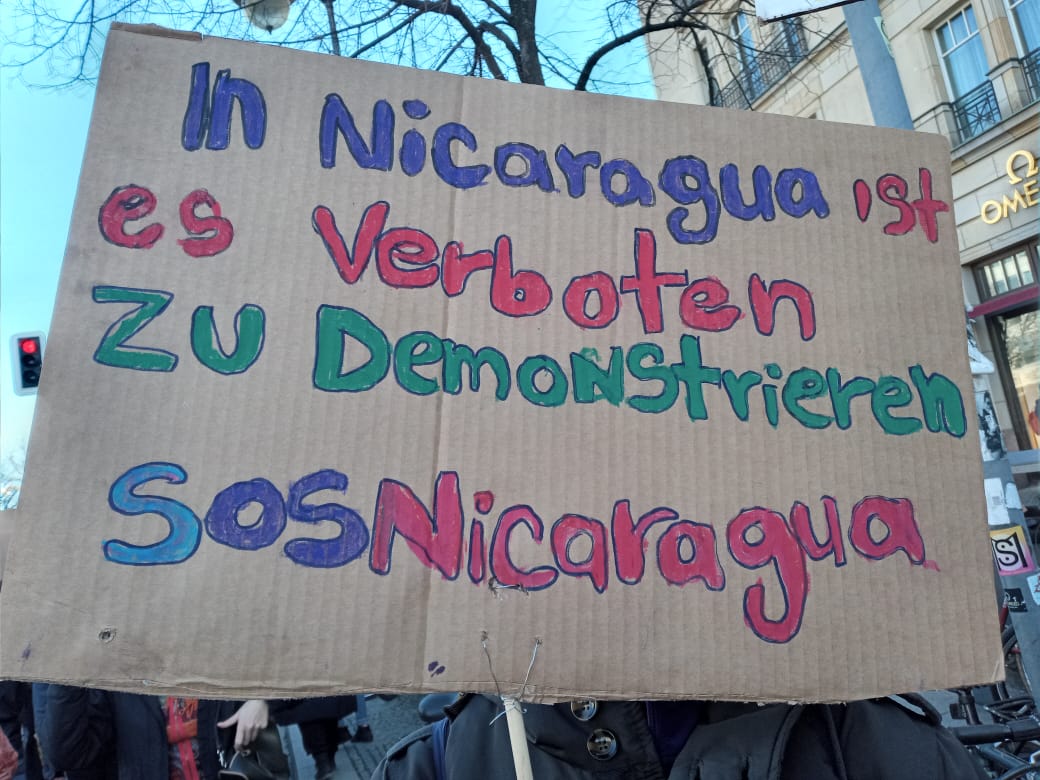 In Nicaragua ist
es Verboten
Zu Demonstrieren
SOSNicaragua
Ω
OME